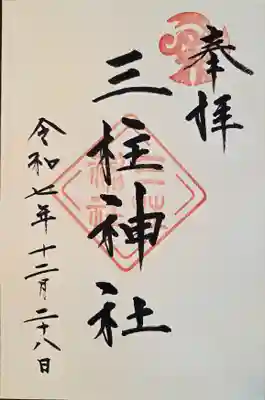 奉拝
三柱神社
令和七年十二月二十八日